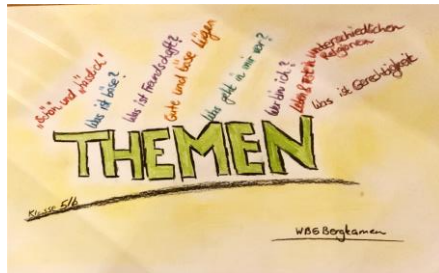 "Schön und "hässlich"
Was ist böse?
Was ist Freundschaft?
Gute und böse Lügen
Was geht in mir vor?
Wer bin ich?
Leben & Tod in unterschiedlichen Religionen
Was ist Gerechtigkeit
THEMEN
Klasse 5/6
WBG Bergkamen